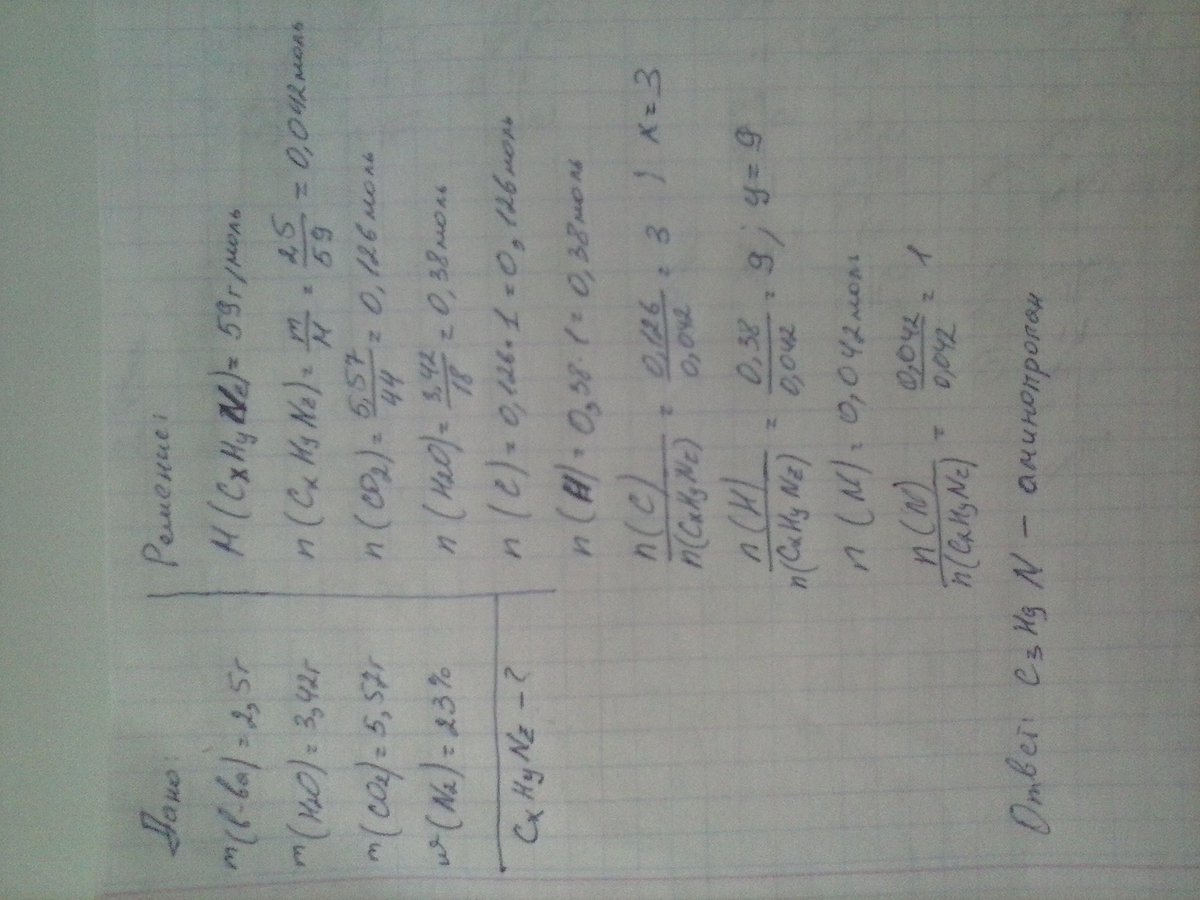 Дано:
m(в-ва) = 2,5г
m(H2O) = 3,42г
m(CO2) = 5,57г
w(N2) = 23%
CxHyNz - ?
Решение:
M(CxHyNz) = 59г/моль
n(CxHyNz) = m/M = 2,5/59 = 0,042моль
n(CO2) = 5,57/44 = 0,126моль
n(H2O) = 3,42/18 = 0,38моль
n(C) = 0,126·1 = 0,126моль
n(H) = 0,38·1 = 0,38моль
n(C)/n(CxHyNz) = 0,126/0,042 = 3 ; x = 3
n(H)/n(CxHyNz) = 0,38/0,042 = 9; y = 9
n(N) = 0,042моль
n(N)/n(CxHyNz) = 0,042/0,042 = 1
Ответ: C3H9N - аминопропан